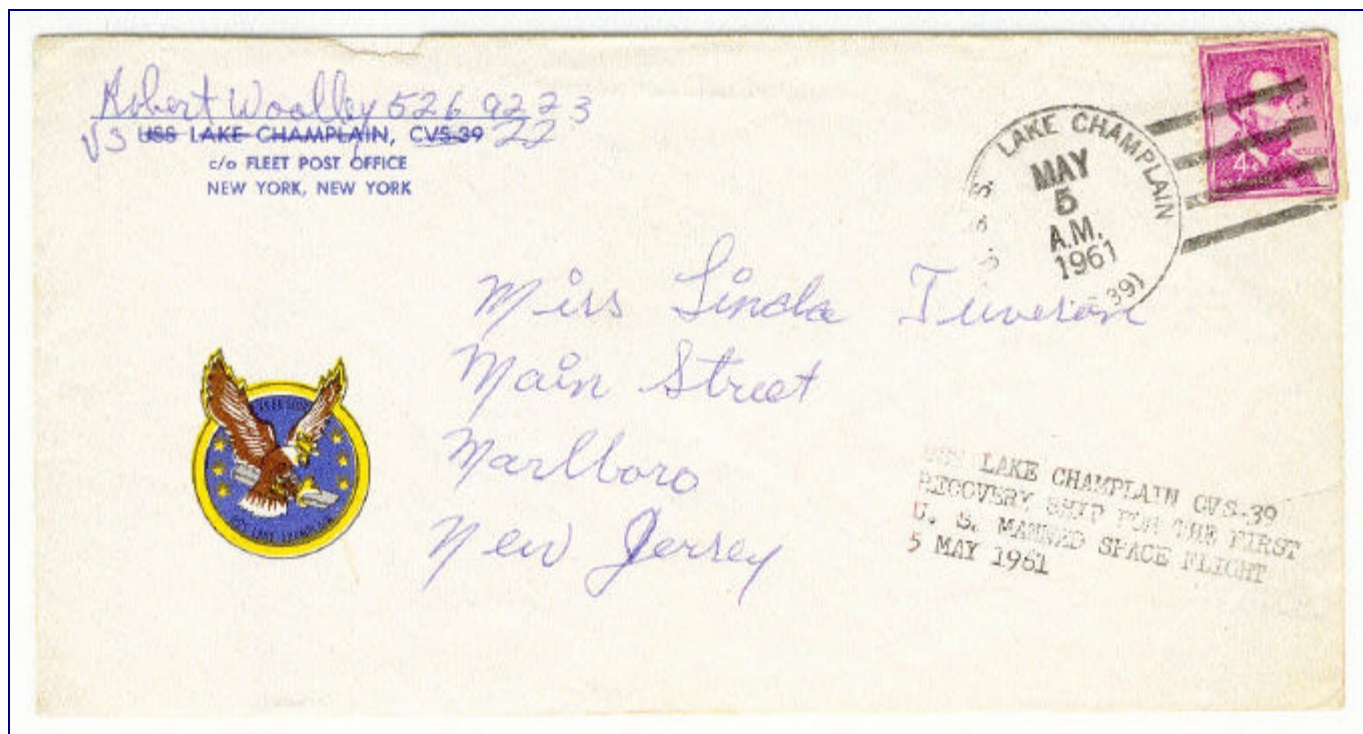 Robert Woolley 526 92 23
VS USS LAKE CHAMPLAIN, CVS-39 22
c/o FLEET POST OFFICE
NEW YORK, NEW YORK
U. S. S. LAKE CHAMPLAIN
MAY
5
A.M.
1961
39)
4¢
Miss Linda Tuveson
Main Street
Marlboro
New Jersey
USS LAKE CHAMPLAIN CVS-39
RECOVERY SHIP FOR THE FIRST
U. S. MANNED SPACE FLIGHT
5 MAY 1961